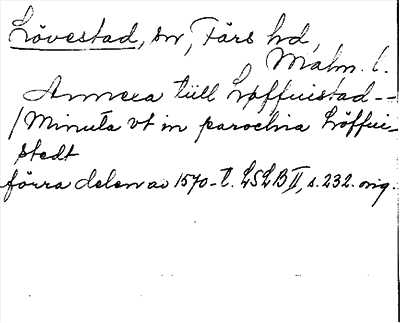 Lövestad, sn, Färs hd,
Malm. l.
Annexa till Löffuistad--
/Minuta vt in parochia Löffui-
stedt
förra delen av 1570-t. LSLB II, s. 232. orig.